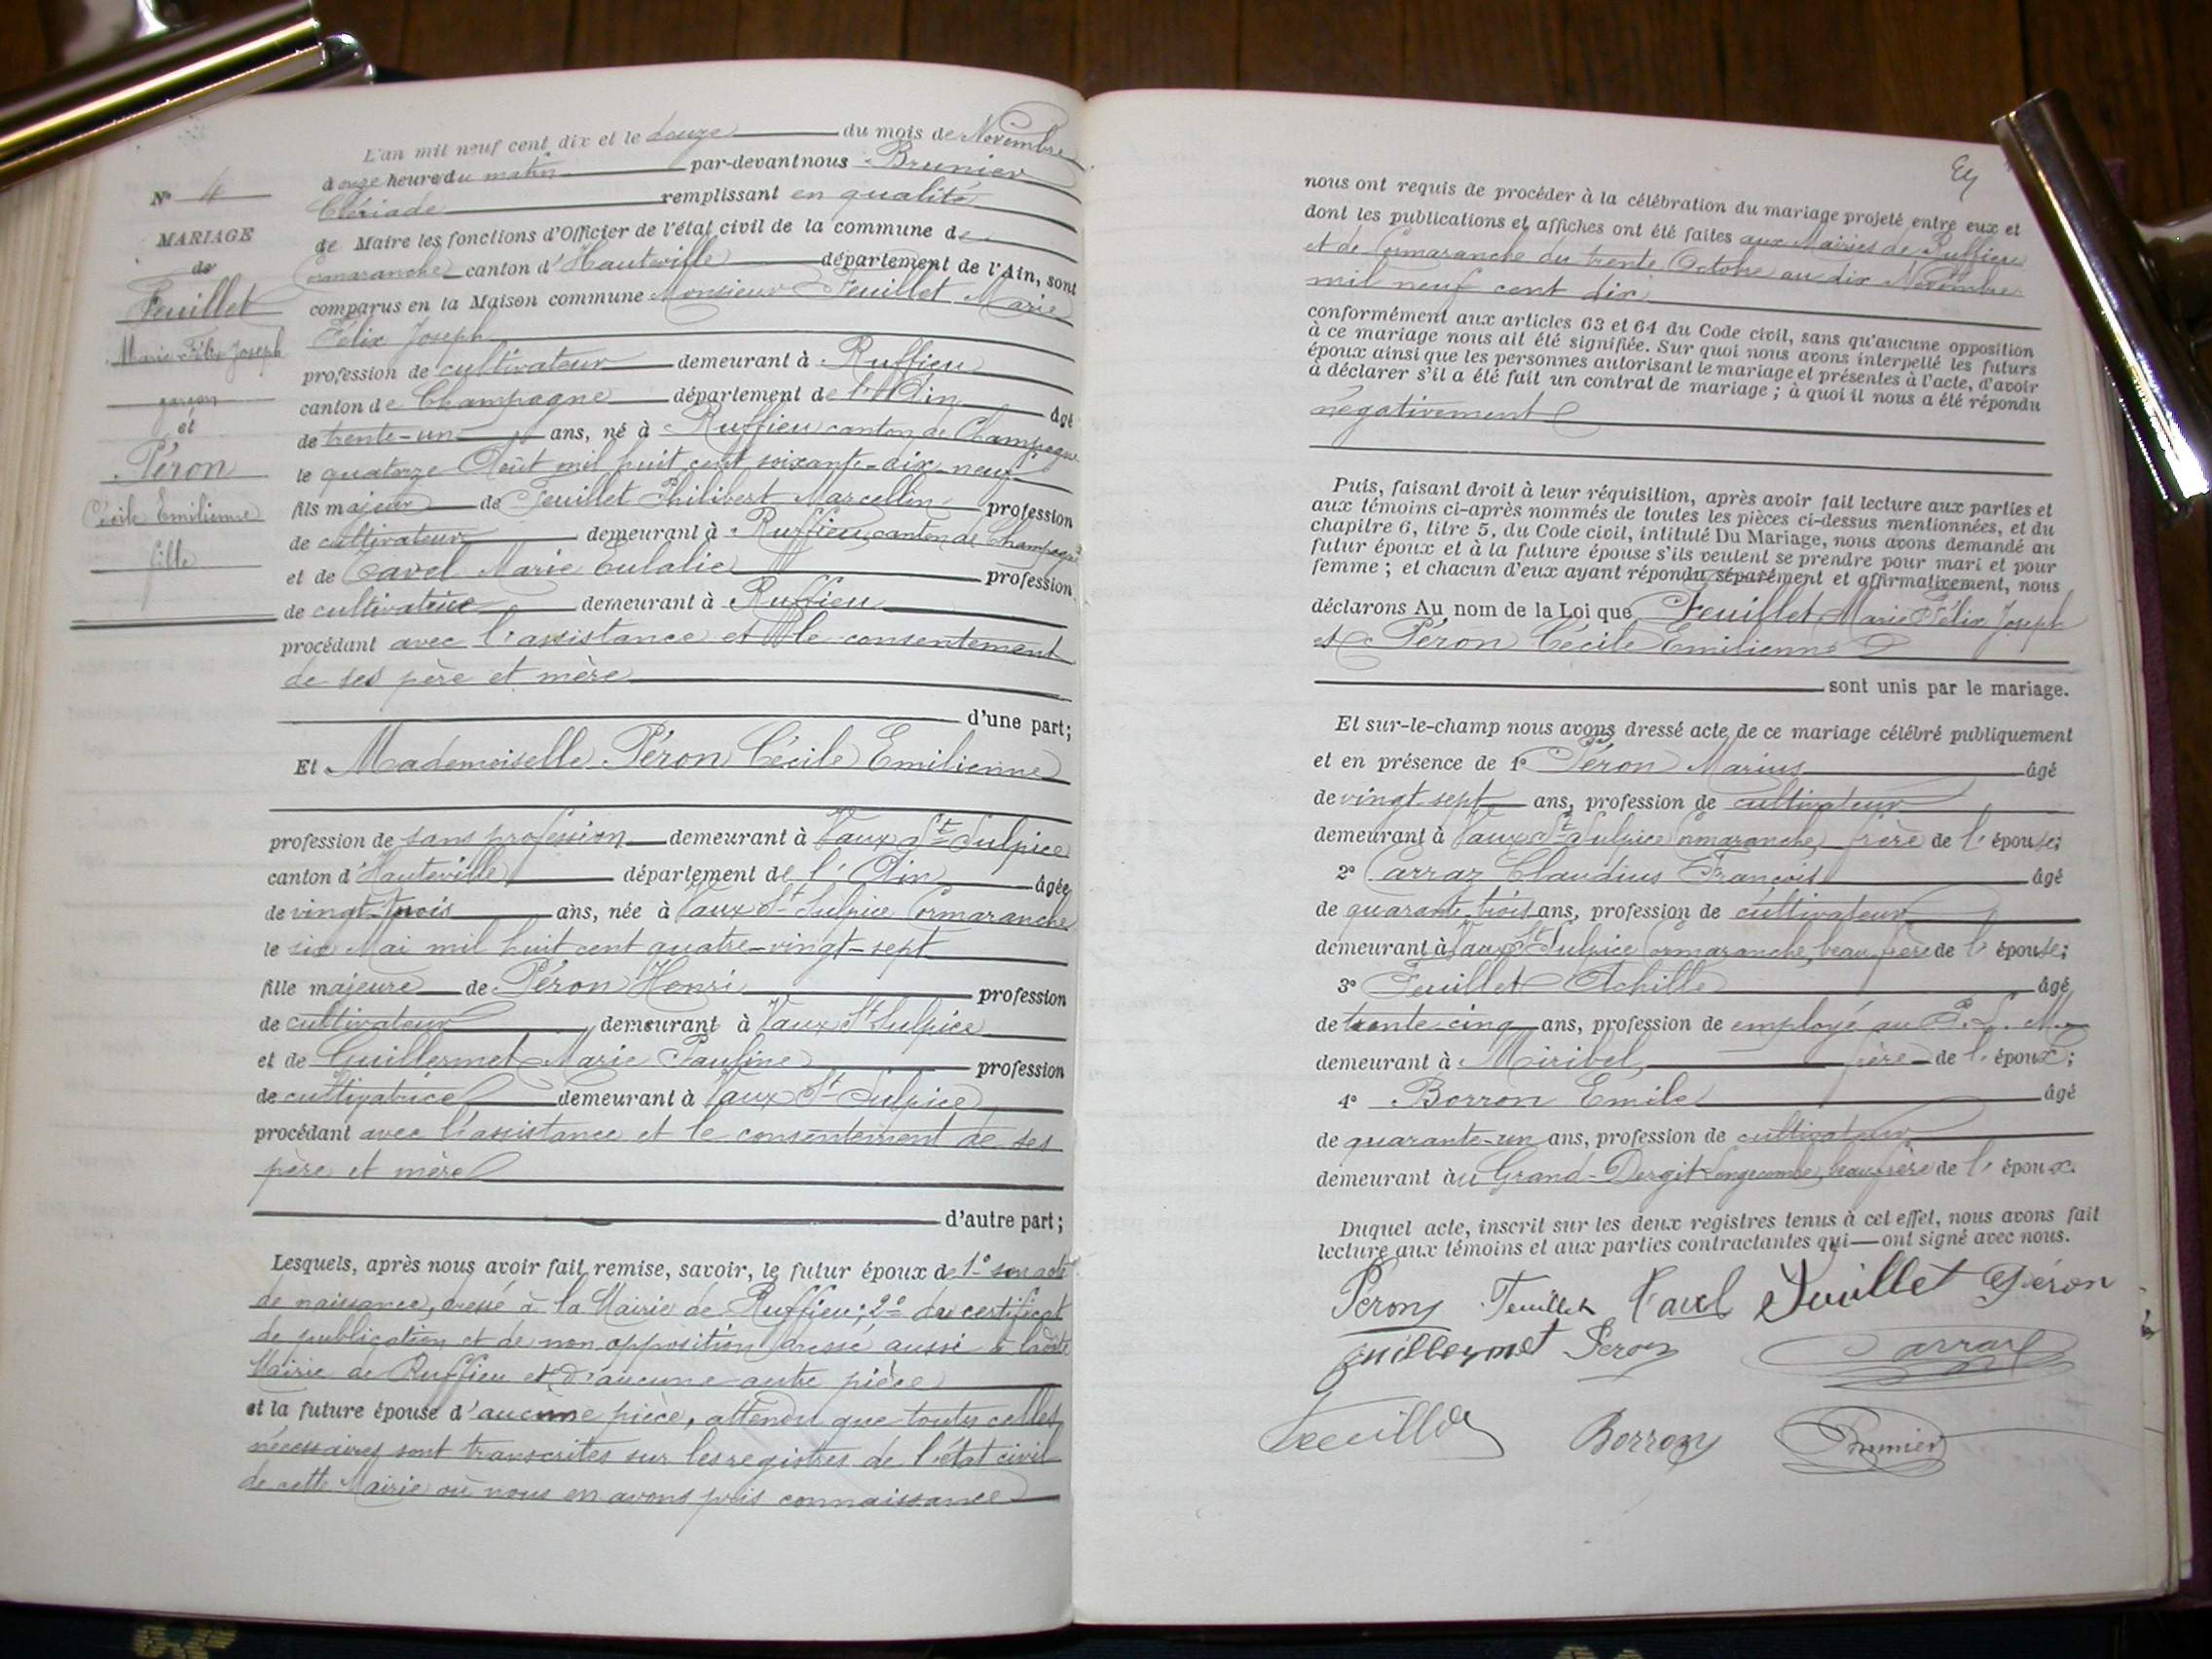 N° 4
MARIAGE
de
Feuillet
Marie Félix Joseph
garçon
et
Péron
Cécile Emilienne
fille
L'an mil neuf cent dix et le douze du mois de Novembre
à onze heure du matin par-devant nous Brunier
Clériade remplissant en qualité
de Maire les fonctions d'Officier de l'état civil de la commune de
Cormaranche canton d'Hauteville département de l'Ain, sont
comparus en la Maison commune Monsieur Feuillet Marie
Félix Joseph
profession de cultivateur demeurant à Ruffieu
canton de Champagne département de l'Ain âgé
de trente-un ans, né à Ruffieu canton de Champagne
le quatorze Août mil huit cent soixante-dix-neuf
fils majeur de Feuillet Philibert Marcellin profession
de cultivateur demeurant à Ruffieu, canton de Champagne
et de Cavel Marie Eulalie profession
de cultivatrice demeurant à Ruffieu
procédant avec l'assistance et le consentement
de ses père et mère
d'une part;
Et Mademoiselle Péron Cécile Emilienne
profession de sans profession demeurant à Vaux St Sulpice
canton d'Hauteville département de l'Ain âgée
de vingt-trois ans, née à Vaux St Sulpice Cormaranche
le six Mai mil huit cent quatre-vingt-sept
fille majeure de Péron Henri profession
de cultivateur demeurant à Vaux St Sulpice
et de Guillermet Marie Pauline profession
de cultivatrice demeurant à Vaux St Sulpice
procédant avec l'assistance et le consentement de ses
père et mère
d'autre part;
Lesquels, après nous avoir fait remise, savoir, le futur époux de 1° son acte
de naissance, dressé à la Mairie de Ruffieu; 2° du certificat
de publication et de non opposition dressé aussi à ladite
Mairie de Ruffieu et d'aucune autre pièce
et la future épouse d'aucune pièce, attendu que toutes celles
nécessaires sont transcrites sur les registres de l'état civil
de cette Mairie où nous en avons pris connaissance
nous ont requis de procéder à la célébration du mariage projeté entre eux et
dont les publications et affiches ont été faites aux Mairies de Ruffieu
et de Cormaranche du trente Octobre au dix Novembre
mil neuf cent dix
conformément aux articles 63 et 64 du Code civil, sans qu'aucune opposition
à ce mariage nous ait été signifiée. Sur quoi nous avons interpellé les futurs
époux ainsi que les personnes autorisant le mariage et présentes à l'acte, d'avoir
à déclarer s'il a été fait un contrat de mariage; à quoi il nous a été répondu
négativement
Puis, faisant droit à leur réquisition, après avoir fait lecture aux parties et
aux témoins ci-après nommés de toutes les pièces ci-dessus mentionnées, et du
chapitre 6, titre 5, du Code civil, intitulé Du Mariage, nous avons demandé au
futur époux et à la future épouse s'ils veulent se prendre pour mari et pour
femme; et chacun d'eux ayant répondu séparément et affirmativement, nous
déclarons Au nom de la Loi que Feuillet Marie Félix Joseph
et Péron Cécile Emilienne
sont unis par le mariage.
Et sur-le-champ nous avons dressé acte de ce mariage célébré publiquement
et en présence de 1° Péron Marius âgé
de vingt sept ans, profession de cultivateur
demeurant à Vaux St Sulpice Cormaranche, frère de l'épouse;
2° Carraz Claudius François âgé
de quarante-trois ans, profession de cultivateur
demeurant à Vaux St Sulpice Cormaranche, beau frère de l'épouse;
3° Feuillet Achille âgé
de trente cinq ans, profession de employé au P. L. M.
demeurant à Miribel frère de l'époux;
4° Borron Emile âgé
de quarante-un ans, profession de cultivateur
demeurant au Grand-Dergit Longecombe, beau frère de l'époux.
Duquel acte, inscrit sur les deux registres tenus à cet effet, nous avons fait
lecture aux témoins et aux parties contractantes qui—ont signé avec nous.
Péron Feuillet Cavel Feuillet Péron
guillermet Peron Carraz
Feuillet Borron Brunier